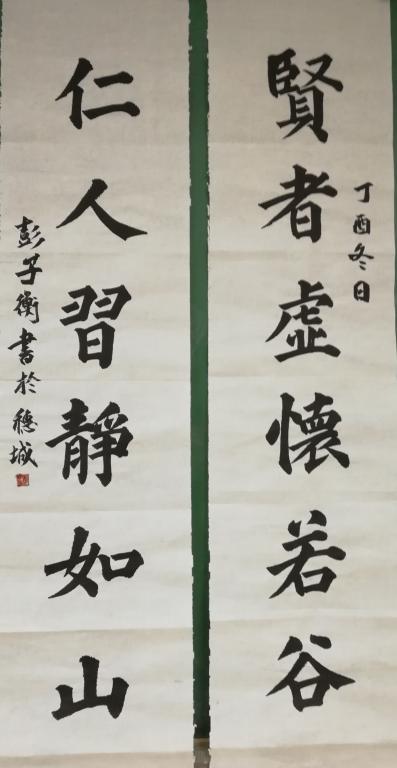 賢者虛懷若谷
丁酉冬日
仁人習靜如山
彭子衡書於穗城